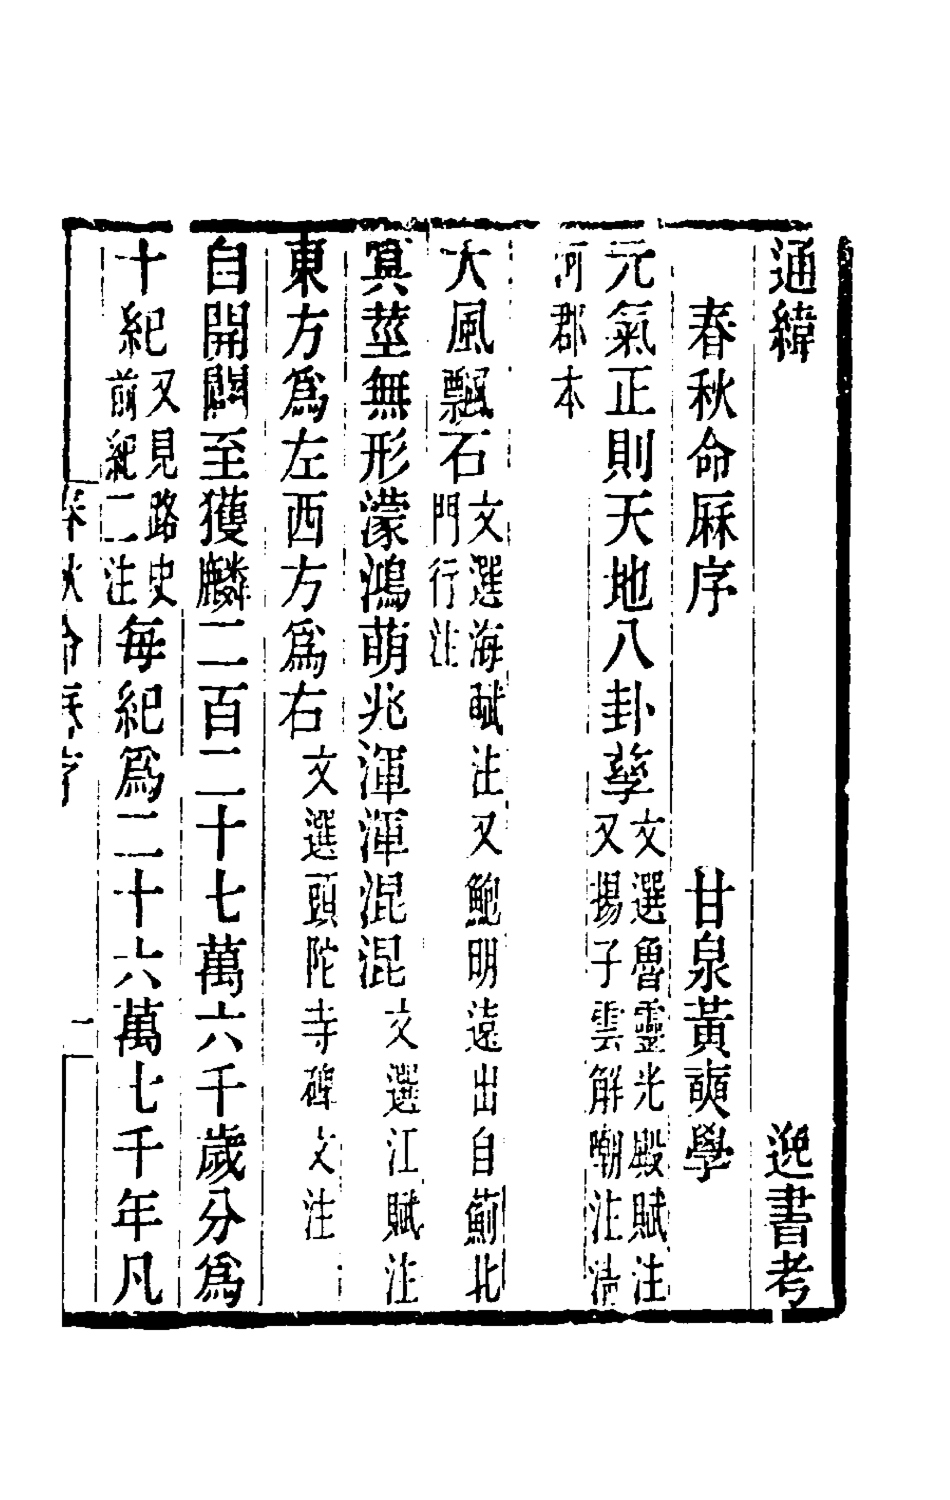 通緯 逸書考
春秋命厤序 甘泉黃奭學
元氣正則天地八卦孳文選魯靈光殿賦注又揚子雲解嘲注清
河郡本
大風飄石文選海賦注又鮑明遠出自薊北門行注
冥莖無形濛鴻萌兆渾渾混混文選江賦注
東方爲左西方爲右文選頭陀寺碑文注
自開闢至獲麟二百二十七萬六千歲分爲
十紀又見路史前紀二注每紀爲二十六萬七千年凡
春秋命厤序 一